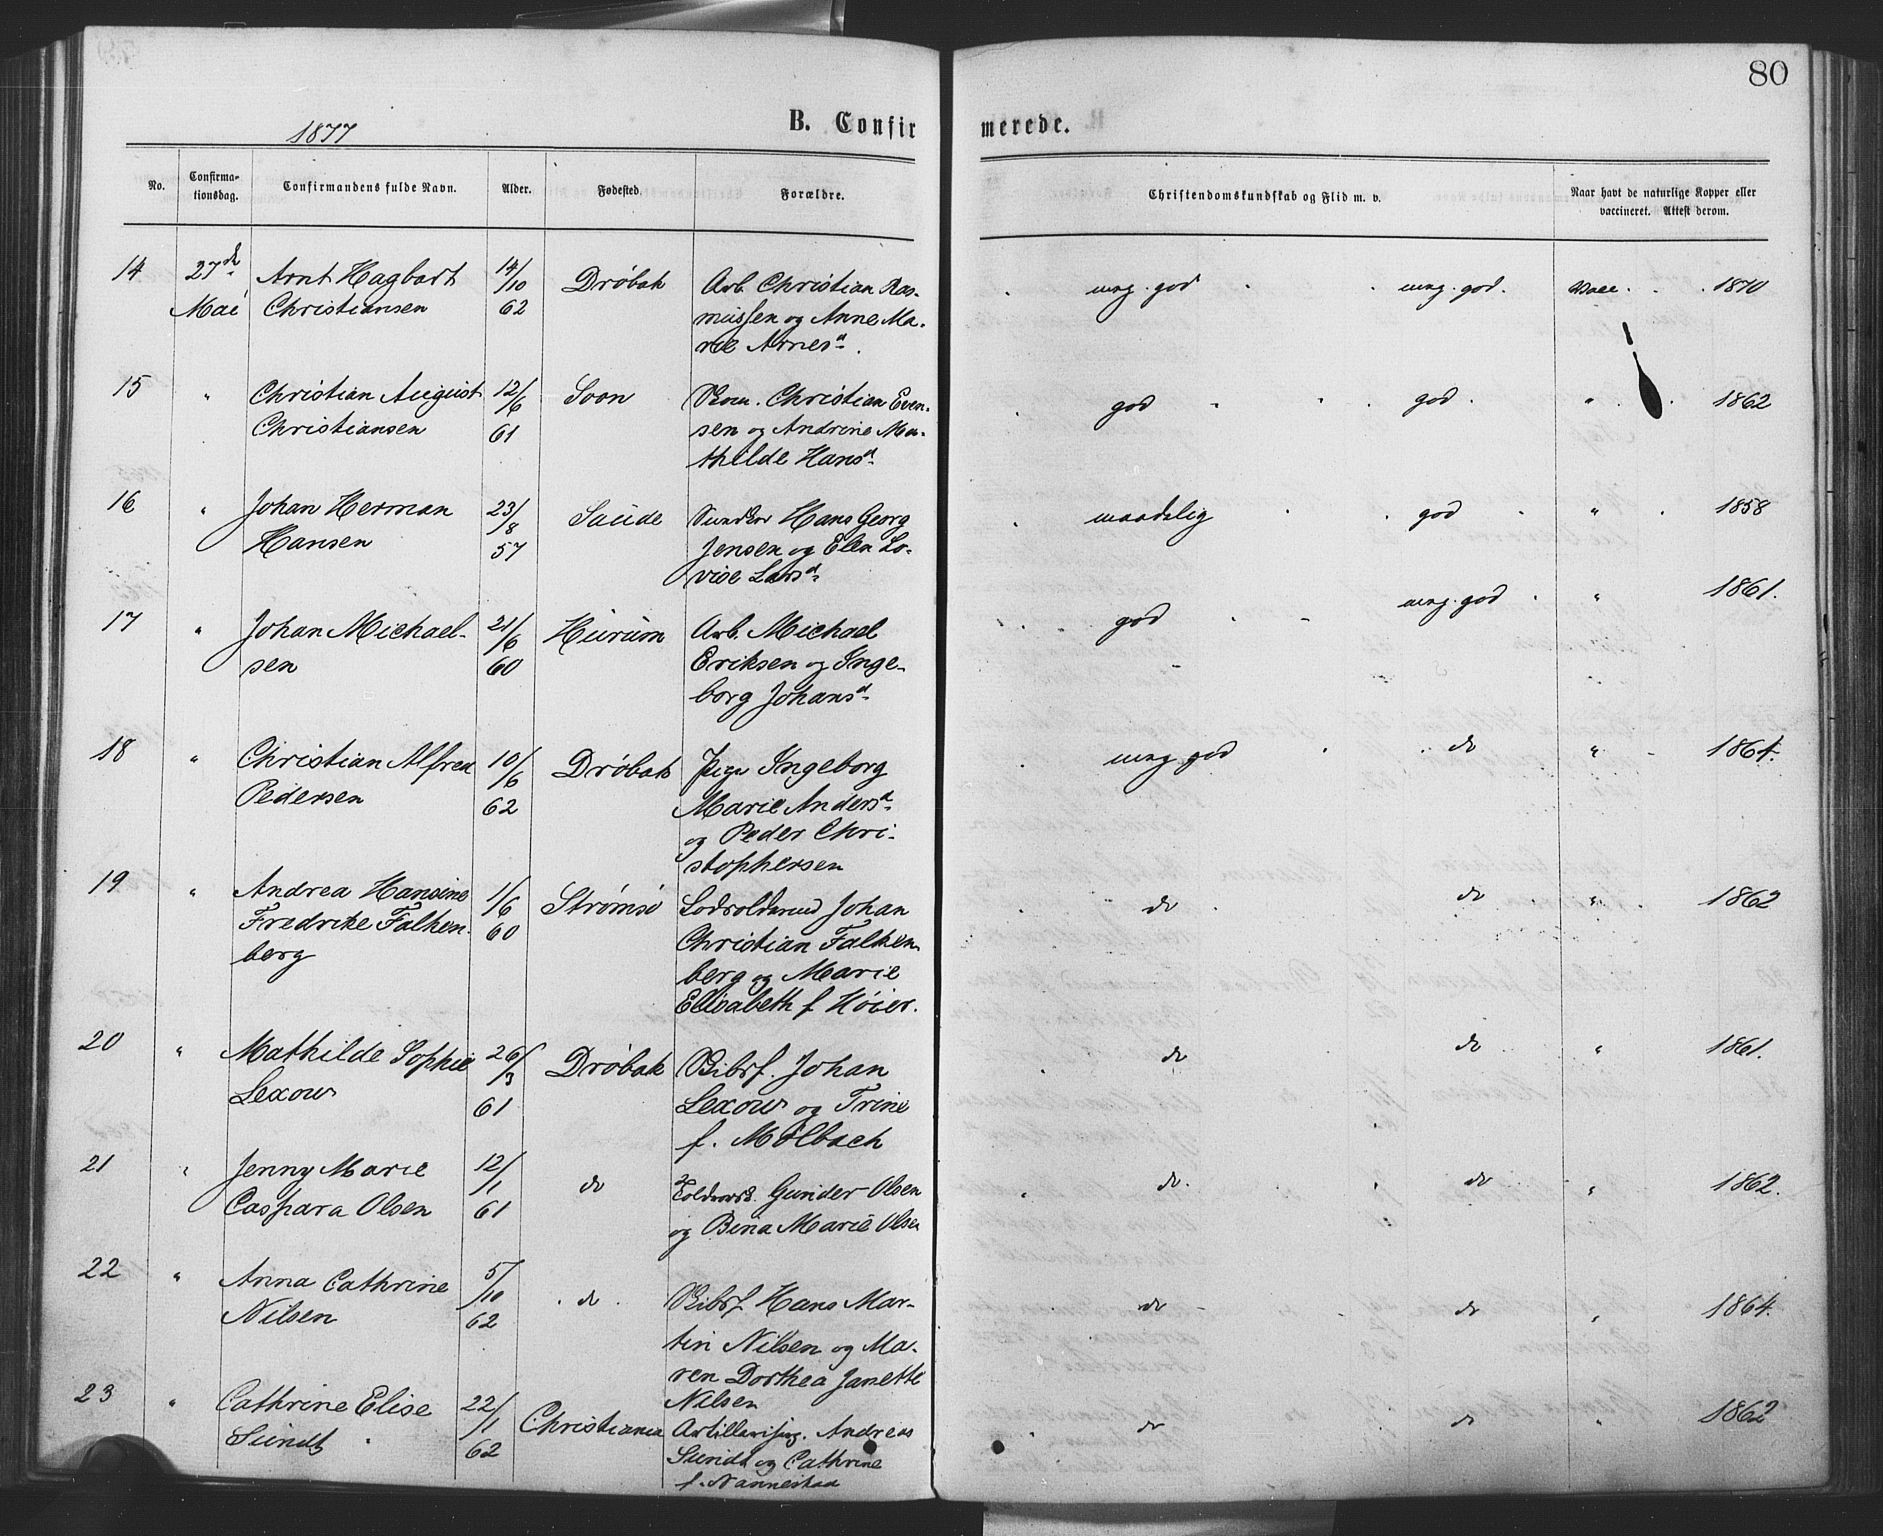 80
1877
B. Confir
merede.
No.
Confirma-
tionsdag.
Confirmandens fulde Navn.
Alder.
Fødested.
Forældre.
Christendomskundskab og Flid m. v.
Naar havt de naturlige Kopper eller
vaccineret. Attest derom.
14 27de Arnt Hagbart 14/10 Drøbak Arb. Christian Ras- mg. god mg. god. Vacc. 1870
Mai Christiansen 62 mussen og Anne Ma-
rie Arnesd.
15 " Christian August 12/6 Soon Christian Even- god god. " 1862
Christiansen 61 sen og Andrine Ma-
thilde Hansd.
16 " Johan Herman 23/8 Saude Hans Georg maadelig god " 1858
Hansen 57 Jensen og Elen Lo-
vise Larsd.
17 " Johan Michael- 21/6 Hurum Arb. Michael god mg. god " 1861.
sen 60 Eriksen og Inge-
borg Johansd.
18 " Christian Alfred 10/6 Drøbak Pige Ingeborg mg. god do " 1864.
Pedersen 62 Marie Andersd.
og Peder Chri-
stophersen
19 " Andrea Hansine 1/6 Strømsø Johan do do " 1862
Fredrike Falken- 60 Christian Falken-
berg berg og Marie
Elisabeth f Høier.
20 " Mathilde Sophie 26/3 Drøbak Johan do do " 1861.
Lexow 61 Lexow og Trine
f. Mølbach
21 " Jenny Marie 12/1 do Gunder Olsen do. do " 1862.
Caspara Olsen 61 og Bina Marie Olsen
22 " Anna Cathrine 5/10 do Hans Mar- do do " 1864.
Nilsen 62 tin Nilsen og Ma-
ren Dorthea Janette
Nilsen
23 " Cathrine Elise 22/1 Christiania Andreas do do " 1862
Sundt 62 Sundt og Cathrine
f. Nannestad